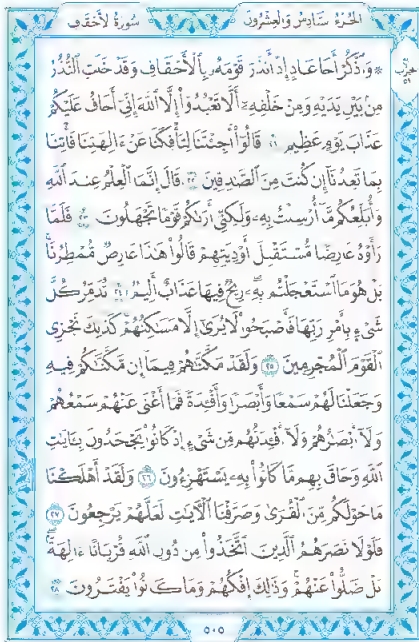 الجزء سادس والعشرون سورة الأحقاف
۞ وَاذْكُرْ أَخَا عَادٍ إِذْ أَنذَرَ قَوْمَهُۥ بِٱلْأَحْقَافِ وَقَدْ خَلَتِ ٱلنُّذُرُ
مِنۢ بَيْنِ يَدَيْهِ وَمِنْ خَلْفِهِۦٓ أَلَّا تَعْبُدُوٓا۟ إِلَّا ٱللَّهَ إِنِّىٓ أَخَافُ عَلَيْكُمْ
عَذَابَ يَوْمٍ عَظِيمٍ ٢١ قَالُوٓا۟ أَجِئْتَنَا لِتَأْفِكَنَا عَنْ ءَالِهَتِنَا فَأْتِنَا
بِمَا تَعِدُنَآ إِن كُنتَ مِنَ ٱلصَّٰدِقِينَ ٢٢ قَالَ إِنَّمَا ٱلْعِلْمُ عِندَ ٱللَّهِ
وَأُبَلِّغُكُم مَّآ أُرْسِلْتُ بِهِۦ وَلَٰكِنِّىٓ أَرَىٰكُمْ قَوْمًا تَجْهَلُونَ ٢٣ فَلَمَّا
رَأَوْهُ عَارِضًا مُّسْتَقْبِلَ أَوْدِيَتِهِمْ قَالُوا۟ هَٰذَا عَارِضٌ مُّمْطِرُنَا
بَلْ هُوَ مَا ٱسْتَعْجَلْتُم بِهِۦ رِيحٌ فِيهَا عَذَابٌ أَلِيمٌ ٢٤ تُدَمِّرُ كُلَّ
شَىْءٍۭ بِأَمْرِ رَبِّهَا فَأَصْبَحُوا۟ لَا يُرَىٰٓ إِلَّا مَسَٰكِنُهُمْ كَذَٰلِكَ نَجْزِى
ٱلْقَوْمَ ٱلْمُجْرِمِينَ ٢٥ وَلَقَدْ مَكَّنَّٰهُمْ فِيمَآ إِن مَّكَّنَّٰكُمْ فِيهِ
وَجَعَلْنَا لَهُمْ سَمْعًا وَأَبْصَٰرًا وَأَفْـِٔدَةً فَمَآ أَغْنَىٰ عَنْهُمْ سَمْعُهُمْ
وَلَآ أَبْصَٰرُهُمْ وَلَآ أَفْـِٔدَتُهُم مِّن شَىْءٍ إِذْ كَانُوا۟ يَجْحَدُونَ بِـَٔايَٰتِ
ٱللَّهِ وَحَاقَ بِهِم مَّا كَانُوا۟ بِهِۦ يَسْتَهْزِءُونَ ٢٦ وَلَقَدْ أَهْلَكْنَا
مَا حَوْلَكُم مِّنَ ٱلْقُرَىٰ وَصَرَّفْنَا ٱلْءَايَٰتِ لَعَلَّهُمْ يَرْجِعُونَ ٢٧
فَلَوْلَا نَصَرَهُمُ ٱلَّذِينَ ٱتَّخَذُوا۟ مِن دُونِ ٱللَّهِ قُرْبَانًا ءَالِهَةًۢ
بَلْ ضَلُّوا۟ عَنْهُمْ وَذَٰلِكَ إِفْكُهُمْ وَمَا كَانُوا۟ يَفْتَرُونَ ٢٨
٥٠٥